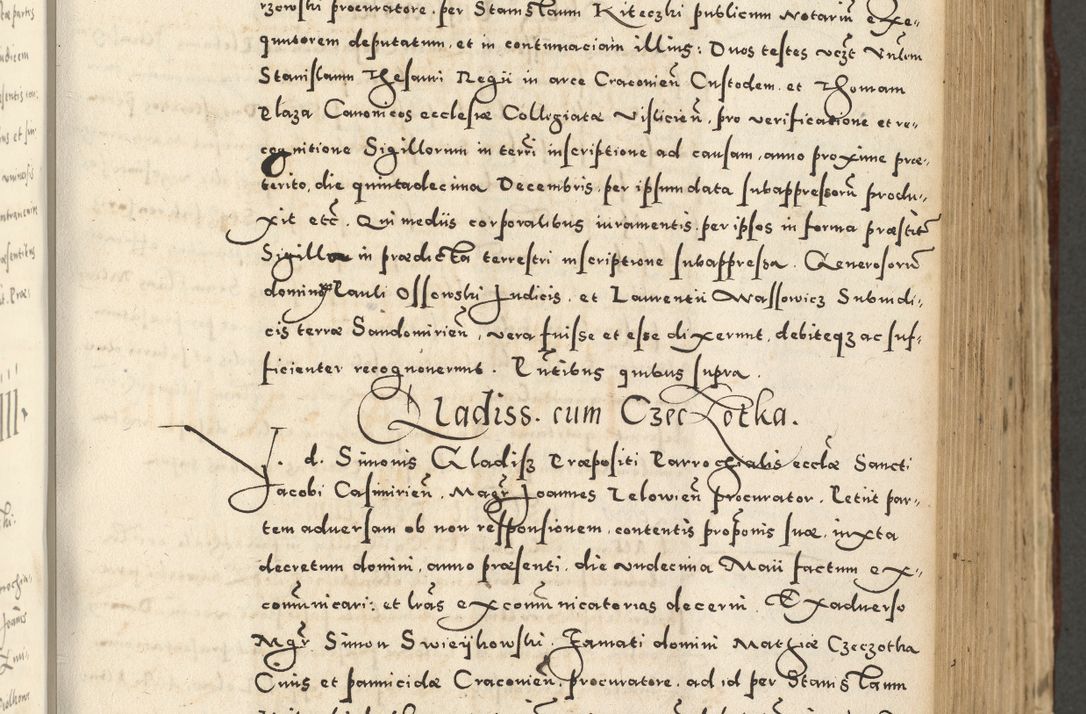 rzowski procuratore, per Stanislaum Kiteczki publicum Notariū exe-
quutorem deputatum, et in contumaciam illius: Duos testes vcz̄t Vnlem
Stanislaum Thesauri Regii in arce Cracovieñ Custodem, et Thomam
Plaza Canonicos ecclesiæ Collegiatæ Visliciēn, pro verificatione et re-
cognitione Sigillorum in terrī inscriptione ad causam, anno proxime præ-
terito, die quintadecima Decembris, per ipsum data subappressorū produ-
xit etc̄. Qui mediis corporalibus iuramentis, per ipsos in forma præstitis
Sigilla in prædicta terrestri inscriptione subappressa. Generosorū
dominor Pauli Ossowski Judicis, et Laurentii Wassowicz Subiudi-
cis terræ Sandomiriēn, vera fuisse et esse dixerunt, debiteqz ac suf-
ficienter recognoverunt. P̄ntibus quibus supra.
Gladiss. cum Czeczotka.
V. d. Simonis Gladisz Præpositi Parrochialis ecclæ Sancti
Jacobi Casimiriēn, Magr̄ Joannes Relowiēn procurator. Petiit par-
tem adversam ob non responsionem, contentis proponis suæ, iuxta
decretum domini, anno præsenti, die vndecima Maii factum ex-
com̄unicari: et lrās excom̄unicatorias decerni. Exadverso
Mgr̄ Simon Swieijkowski, Famati domini Mathiæ Czeczotka
Civis et pannicidæ Cracoviēn, procuratore, ad id per Stanislaum